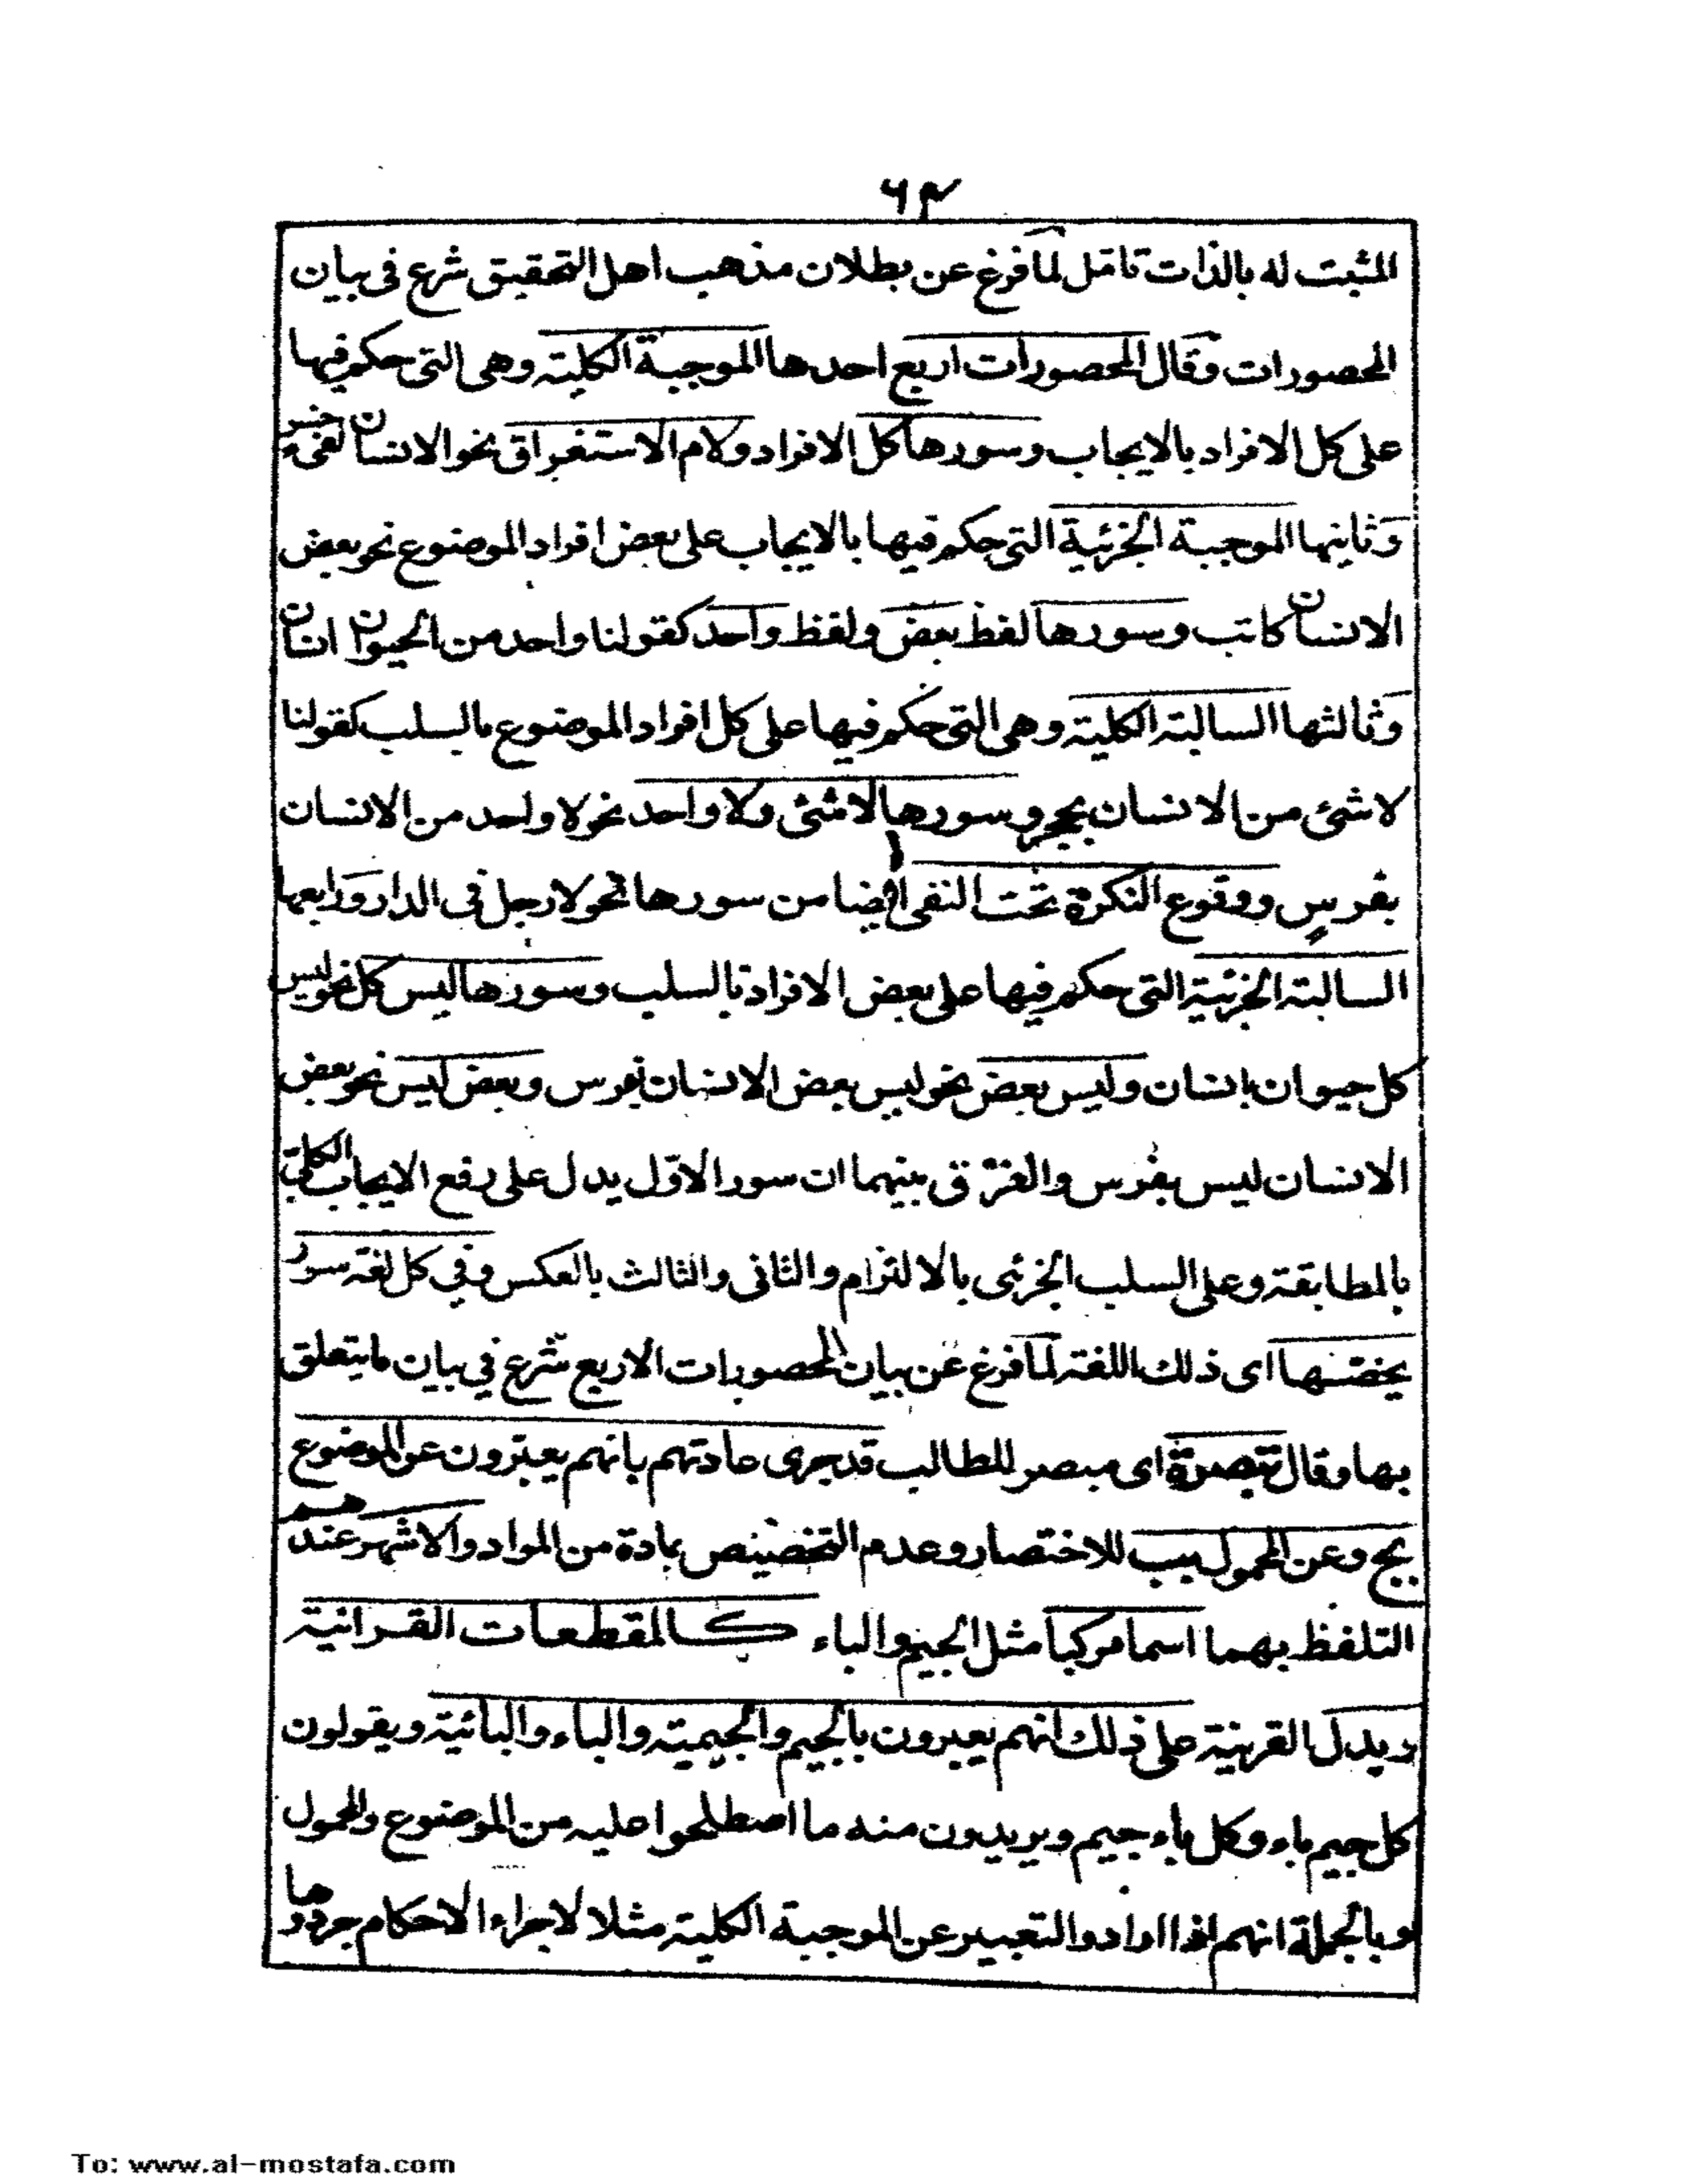 ٦٣
المثبت له بالذات تامّل لما فرغ عن بطلان مذهب اهل التحقيق شرع فى بيان
المحصورات وقال المحصورات اربع احدها الموجبة الكلية وهى التى حكم فيها
على كل الافراد بالايجاب وسورها كل الافراد ولام الاستغراق نحو الانسان لفى خسر
وثانيها الموجبة الجزئية التى حكم فيها بالايجاب على بعض افراد الموضوع نحو بعض
الانسان كاتب وسورها لفظ بعض ولفظ واحد كقولنا واحد من الحيوان انسان
وثالثها السالبة الكلية وهى التى حكم فيها على كل افراد الموضوع بالسلب كقولنا
لا شئ من الانسان بحجر وسورها لا شئ ولا واحد نحو لا واحد من الانسان
بفرسٍ ووقوع النكرة تحت النفى ايضا من سورها نحو لا رجل فى الدار ورابعها
السالبة الجزئية التى حكم فيها على بعض الافراد بالسلب وسورها ليس كل نحو ليس
كل حيوان انسان وليس بعض نحو ليس بعض الانسان بفرس وبعض ليس نحو بعض
الانسان ليس بفرس والفرق بينهما ان سور الاوّل يدل على رفع الايجاب الكلىّ
بالمطابقة وعلى السلب الجزئى بالالتزام والثانى والثالث بالعكس وفى كل لغة سور
يختصها اى ذلك اللغة لما فرغ عن بيان المحصورات الاربع شرع فى بيان ما يتعلق
بها وقال تبصرة اى مبصر للطالب قد جرى عادتهم بانهم يعبّرون عن الموضوع
بج وعن المحمول بب للاختصار وعدم التخصيص بمادة من المواد والاشهر عندهم
التلفظ بهما اسما مركبا مثل الجيم والباء كالمقطعات القرانية
ويدل القرينة على ذلك انهم يعبرون بالجيم والجيمية والباء والبائية ويقولون
كل جيم باء وكل باء جيم ويريدون منه ما اصطلحوا عليه من الموضوع والمحمول
وبالجملة انهم اذا ارادوا التعبير عن الموجبة الكلية مثلا لاجراء الاحكام جردوها
To: www.al-mostafa.com